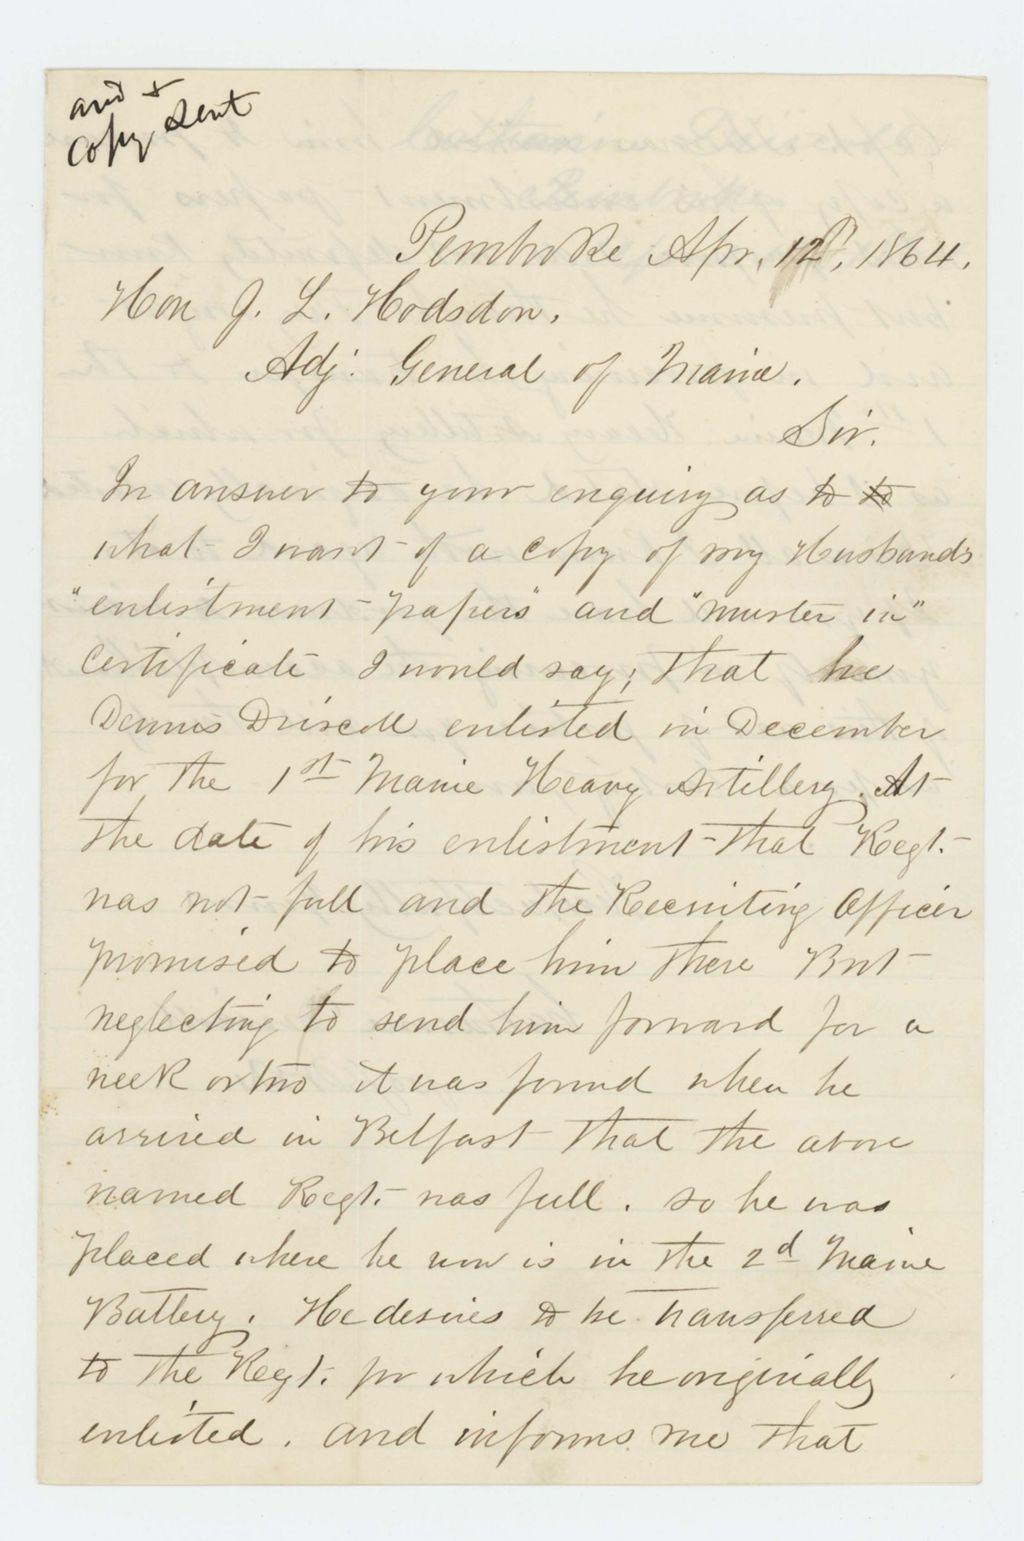 ansd &
Copy sent
Pembroke Apr. 12th, 1864.
Hon J. L. Hodsdon.
Adj: General of Maine.
Sir.
In answer to your enquiry as to to
what I want of a copy of my Husbands
"enlistment papers" and "muster in"
Certificate I would say; that he
Dennis Driscoll enlisted in December
for the 1st Maine Heavy Artillery. At
the date of his enlistment that Regt.
was not full and the Recruiting Officer
promised to place him there But
neglecting to send him forward for a
week or two it was found when he
arrived in Belfast that the above
named Regt. was full. so he was
placed where he now is in the 2d Maine
Battery. He desires to be transferred
to the Regt. for which he originally
enlisted. and informs me that